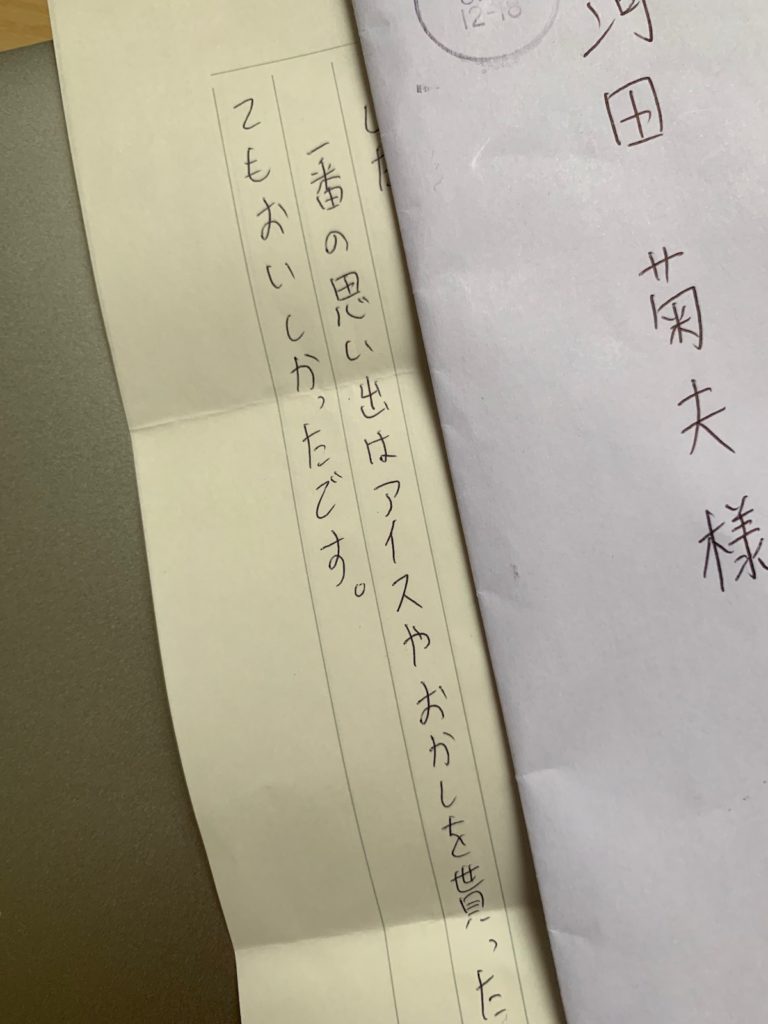 12-18
河田 菊夫 様
した
一番の思い出はアイスやおかしを貰った
てもおいしかったです。